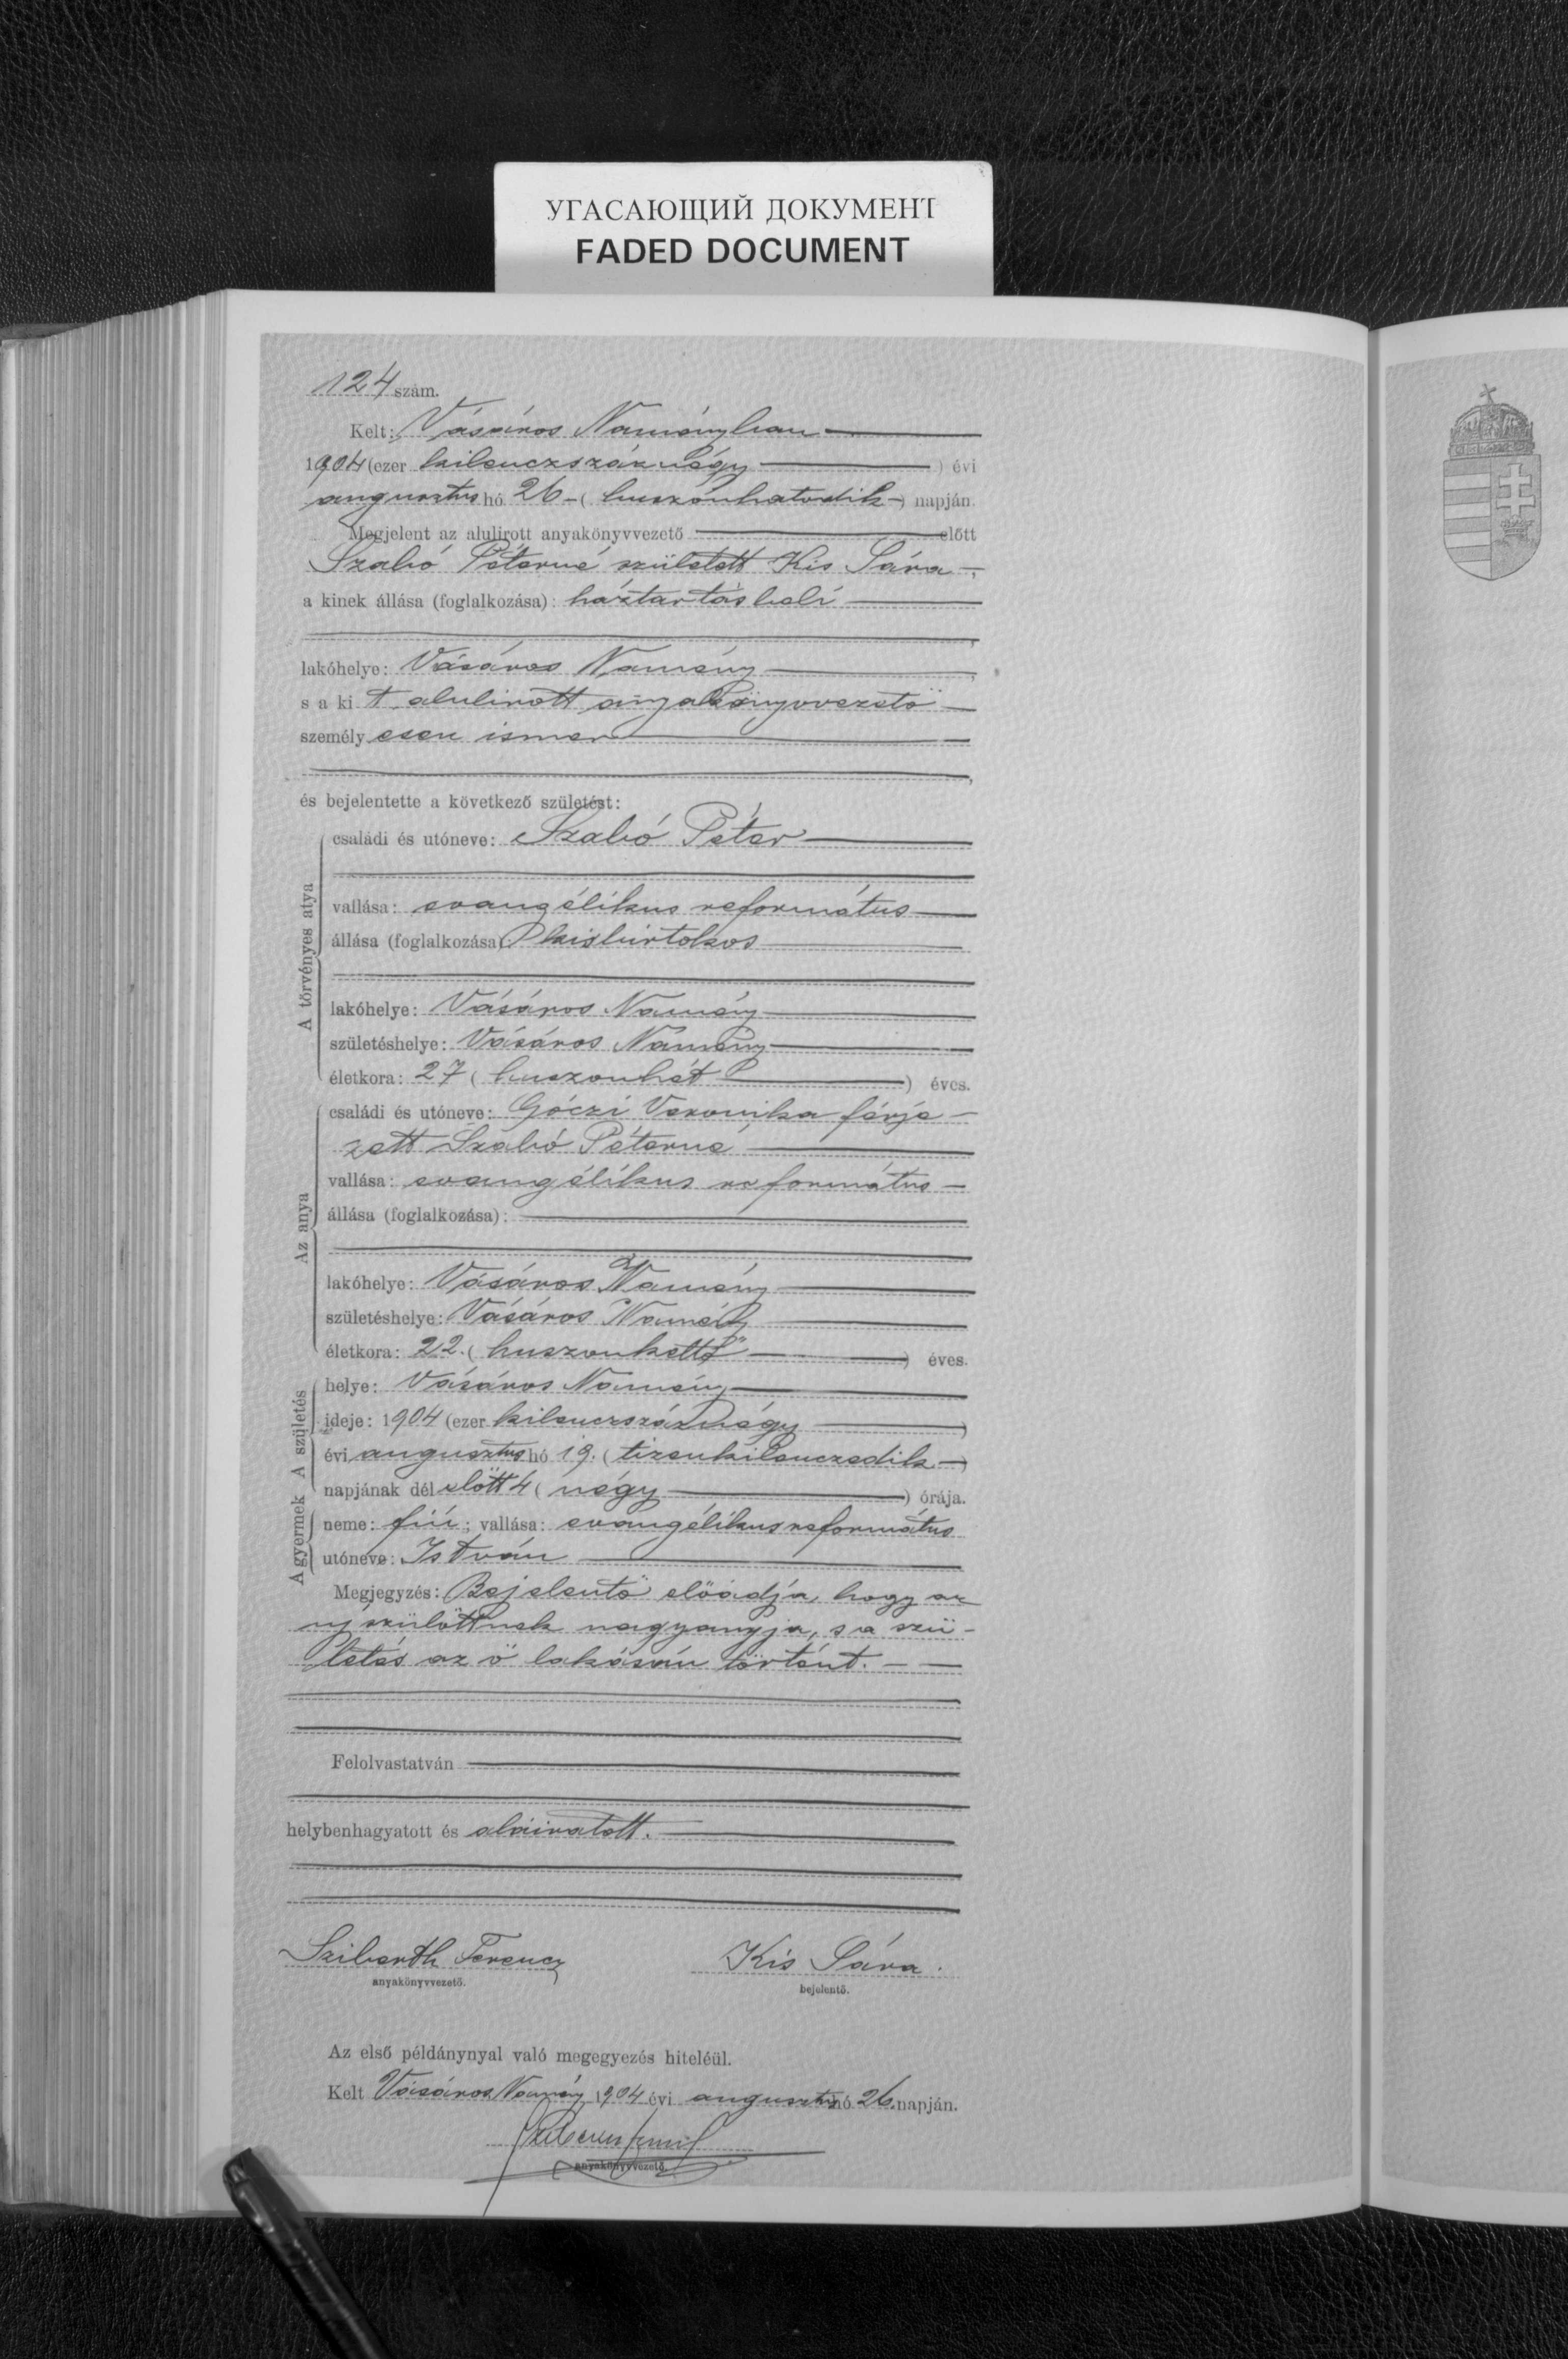 УГАСАЮЩИЙ ДОКУМЕНТ
FADED DOCUMENT
124 szám.
Kelt: Vásáros Naményban
1904 (ezer kilenczszáznégy ) évi
augusztus hó 26 - ( huszonhatodik -) napján.
Megjelent az alulirott anyakönyvvezető előtt
Szabó Péterné született Kis Sára -,
a kinek állása (foglalkozása): háztartásbeli
lakóhelye: Vásáros Namény ,
s a ki t alulirott anyakönyvvezető
személy esen ismer ,
és bejelentette a következő születést:
A törvényes atya
családi és utóneve: Szabó Péter
vallása: evangélikus református
állása (foglalkozása): kisbirtokos
lakóhelye: Vásáros Namény
születéshelye: Vásáros Namény
életkora: 27 ( huszonhét ) éves.
Az anya
családi és utóneve: Góczi Veronika férje-
zett Szabó Péterné
vallása: evangélikus református -
állása (foglalkozása):
lakóhelye: Vásáros Namény
születéshelye: Vásáros Namény
életkora: 22. ( huszonkettő ) éves.
A születés
helye: Vásáros Namény
ideje: 1904 (ezer kilenczszáznégy )
évi augusztus hó 19. ( tizenkilenczedik -)
napjának dél előtt 4 ( négy ) órája.
A gyermek
neme: fiú ; vallása: evangélikus református
utóneve: István
Megjegyzés: Bejelentő előadja, hogy az
uj szülöttnek nagyanyja, s a szü-
letés az ő lakásán történt. -
Felolvastatván
helybenhagyatott és aláiratott.
Sziberth Ferencz Kis Sára.
anyakönyvvezető. bejelentő.
Az első példánynyal való megegyezés hiteléül.
Kelt Vásáros Namény 1904 évi augusztus hó 26. napján.
anyakönyvvezető.